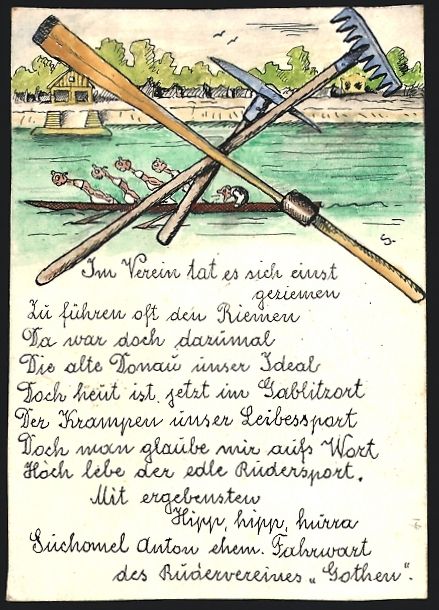 Im Verein tat es sich einst
geziemen
Zu führen oft den Riemen
Da war doch dazumal
Die alte Donau unser Ideal
Doch heut ist jetzt im Gablitzort
Der Krampen unser Leibessport
Doch man glaube mir aufs Wort
Hoch lebe der edle Rudersport.
Mit ergebensten
Hipp, hipp, hurra
Suchomel Anton ehem. Fahrwart
des Rudervereines „Gothen“.
S.